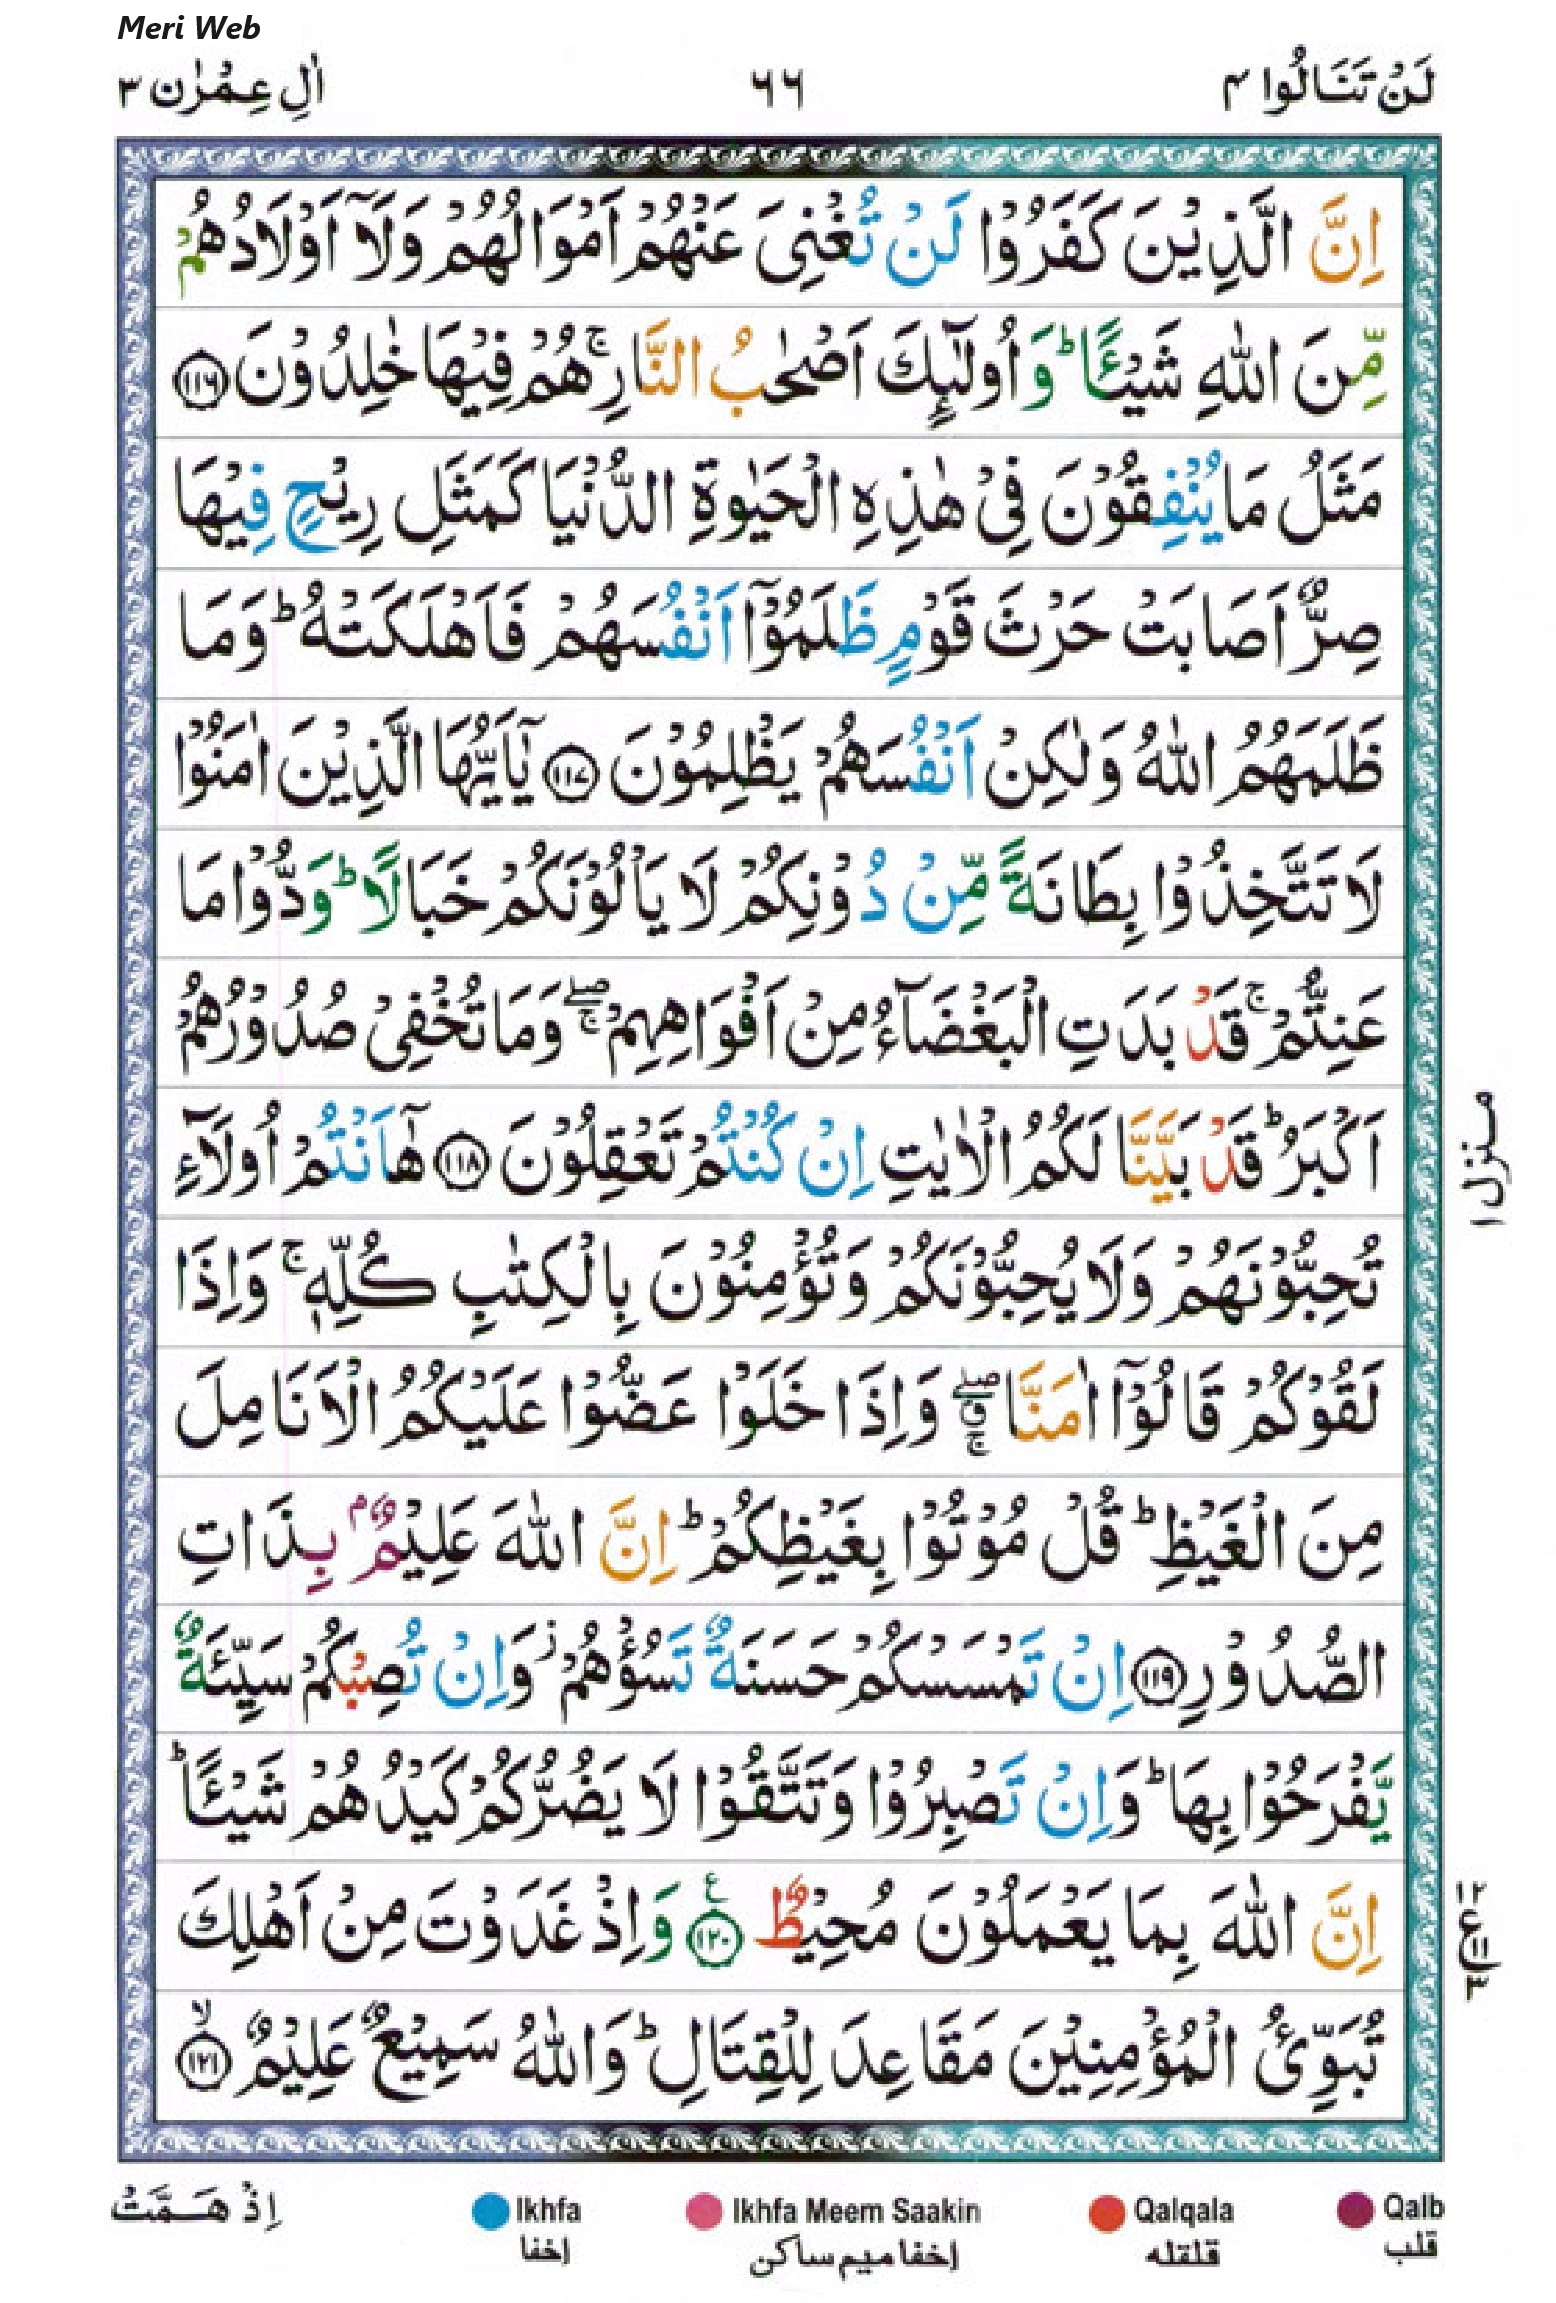 Meri Web
لَنْ تَنَالُوا ۴
٦٦
اٰلِ عِمْرٰن ۳
اِنَّ الَّذِیْنَ کَفَرُوْا لَنْ تُغْنِیَ عَنْهُمْ اَمْوَالُهُمْ وَلَاۤ اَوْلَادُهُمْ
مِّنَ اللّٰهِ شَیْـًٔا ؕ وَ اُولٰٓئِكَ اَصْحٰبُ النَّارِ ۚ هُمْ فِیْهَا خٰلِدُوْنَ ﴿۱۱۶﴾
مَثَلُ مَا یُنْفِقُوْنَ فِیْ هٰذِهِ الْحَیٰوةِ الدُّنْیَا کَمَثَلِ رِیْحٍ فِیْهَا
صِرٌّ اَصَابَتْ حَرْثَ قَوْمٍ ظَلَمُوْۤا اَنْفُسَهُمْ فَاَهْلَکَتْهُ ؕ وَمَا
ظَلَمَهُمُ اللّٰهُ وَلٰکِنْ اَنْفُسَهُمْ یَظْلِمُوْنَ ﴿۱۱۷﴾ یٰۤاَیُّهَا الَّذِیْنَ اٰمَنُوْا
لَا تَتَّخِذُوْا بِطَانَةً مِّنْ دُوْنِکُمْ لَا یَاْلُوْنَکُمْ خَبَالًا ؕ وَدُّوْا مَا
عَنِتُّمْ ۚ قَدْ بَدَتِ الْبَغْضَآءُ مِنْ اَفْوَاهِهِمْ ۖۚ وَمَا تُخْفِیْ صُدُوْرُهُمْ
اَکْبَرُ ؕ قَدْ بَیَّنَّا لَکُمُ الْاٰیٰتِ اِنْ کُنْتُمْ تَعْقِلُوْنَ ﴿۱۱۸﴾ هٰۤاَنْتُمْ اُولَآءِ
تُحِبُّوْنَهُمْ وَلَا یُحِبُّوْنَکُمْ وَتُؤْمِنُوْنَ بِالْکِتٰبِ کُلِّهٖ ۚ وَاِذَا
لَقُوْکُمْ قَالُوْۤا اٰمَنَّا ۖۗۚ وَاِذَا خَلَوْا عَضُّوْا عَلَیْکُمُ الْاَنَامِلَ
مِنَ الْغَیْظِ ؕ قُلْ مُوْتُوْا بِغَیْظِکُمْ ؕ اِنَّ اللّٰهَ عَلِیْمٌۢ بِذَاتِ
الصُّدُوْرِ ﴿۱۱۹﴾ اِنْ تَمْسَسْکُمْ حَسَنَةٌ تَسُؤْهُمْ ؗ وَاِنْ تُصِبْکُمْ سَیِّئَةٌ
یَّفْرَحُوْا بِهَا ؕ وَاِنْ تَصْبِرُوْا وَتَتَّقُوْا لَا یَضُرُّکُمْ کَیْدُهُمْ شَیْـًٔا ؕ
اِنَّ اللّٰهَ بِمَا یَعْمَلُوْنَ مُحِیْطٌ ﴿۱۲۰﴾ ع وَاِذْ غَدَوْتَ مِنْ اَهْلِكَ
تُبَوِّئُ الْمُؤْمِنِیْنَ مَقَاعِدَ لِلْقِتَالِ ؕ وَاللّٰهُ سَمِیْعٌ عَلِیْمٌ ﴿۱۲۱﴾ ۙ
منزل ۱
۱۲
ع ۱۱
۳
اِذْ هَمَّتْ
Ikhfa
إخفا
Ikhfa Meem Saakin
إخفا ميم ساكن
Qalqala
قلقله
Qalb
قلب